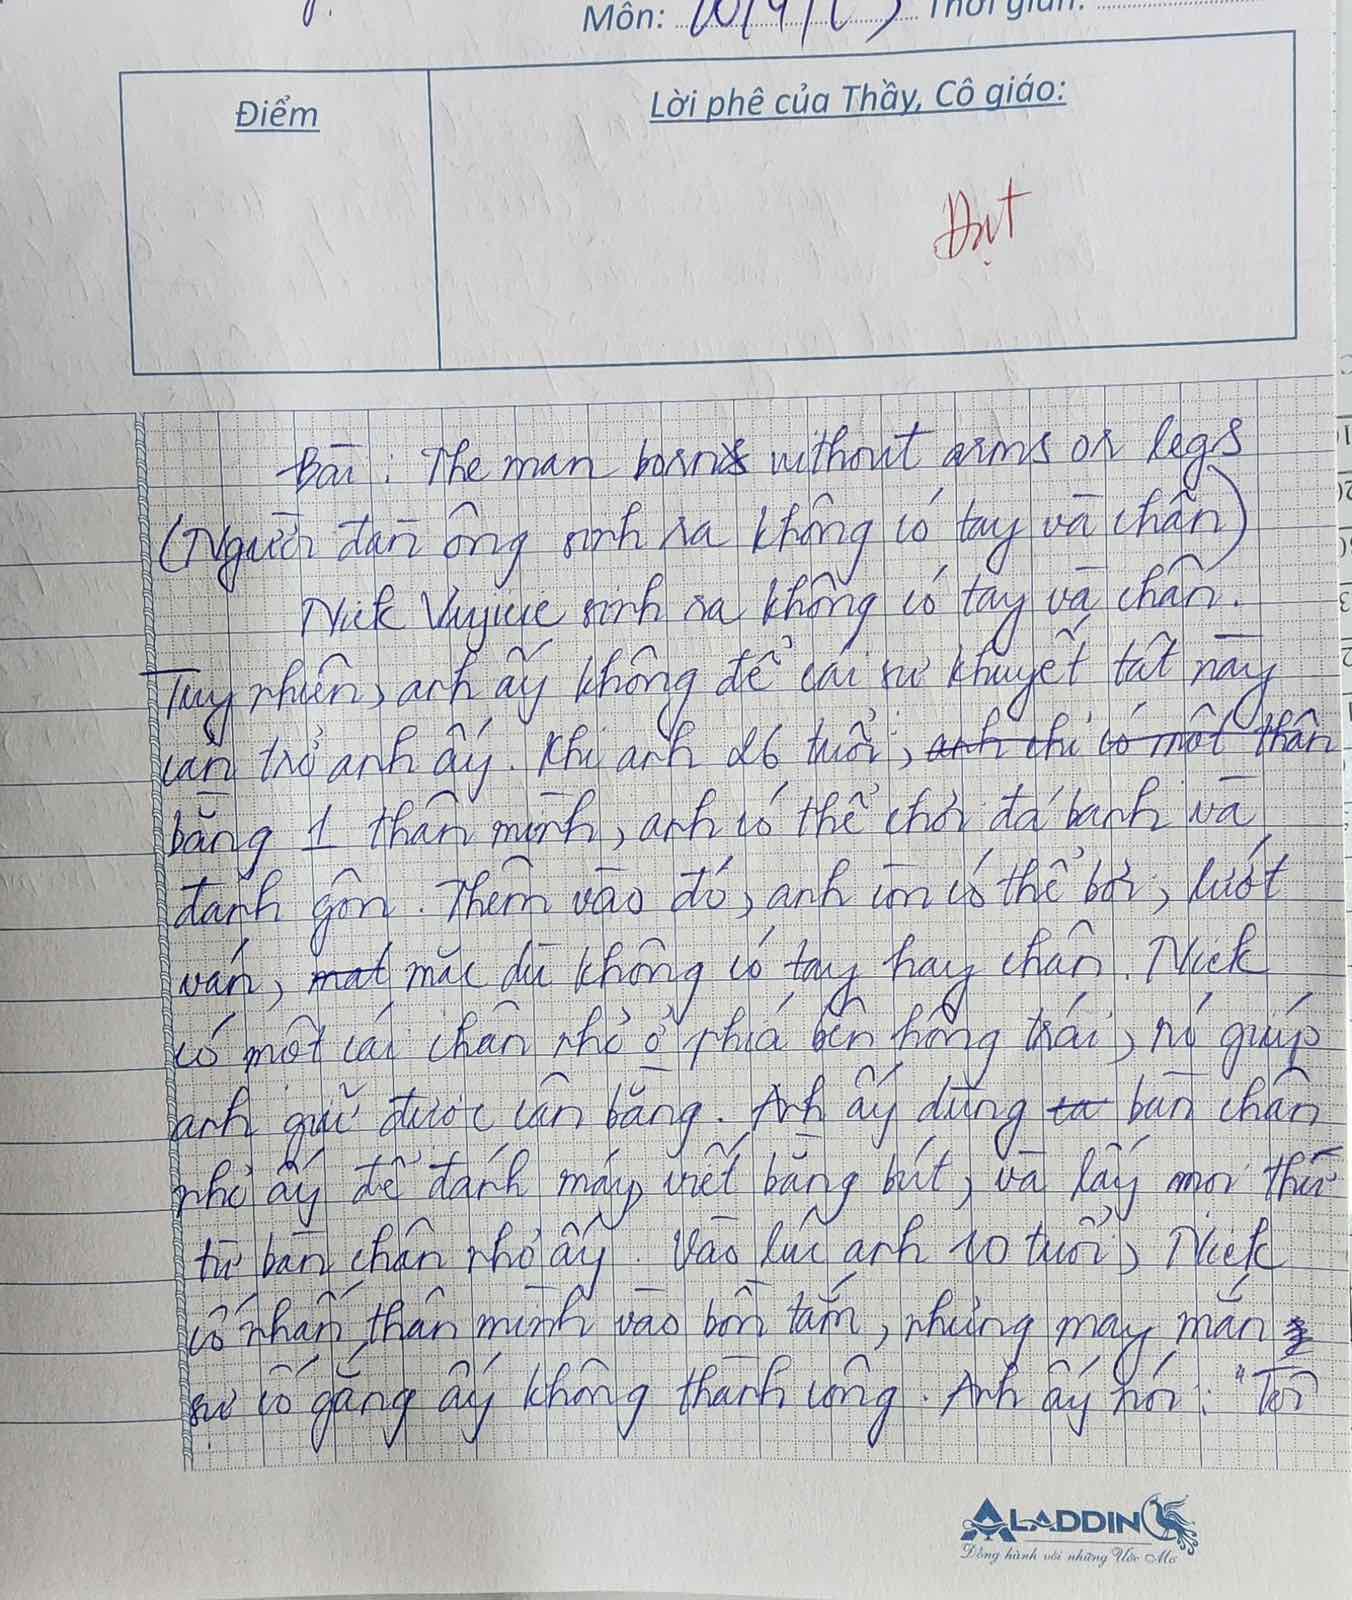 Môn: Thời gian:
Điểm
Lời phê của Thầy, Cô giáo:
Đạt
Bài: The man borns without arms or legs
(Người đàn ông sinh ra không có tay và chân)
Nick Vuijcic sinh ra không có tay và chân.
Tuy nhiên, anh ấy không để cái sự khuyết tât này
cản trở anh ấy. Khi anh 26 tuổi, anh chỉ có một thân
bằng 1 thân mình, anh có thể chơi đá banh và
đánh gôn. Thêm vào đó, anh còn có thể bơi, lướt
ván, mat mặc dù không có tay hay chân. Nick
có một cái chân nhỏ ở phía bên hông trái, nó giúp
anh giữ được cân bằng. Anh ấy dùng ta bàn chân
nhỏ ấy để đánh máy, viết bằng bút, và lấy mọi thứ
từ bàn chân nhỏ ấy. Vào lúc anh 10 tuổi, Nick
cố nhấn thân mình vào bồn tắm, nhưng may mắn
sự cố gắng ấy không thành công. Anh ấy nói: "Tôi
ALADDIN
Đồng hành với những Ước Mơ